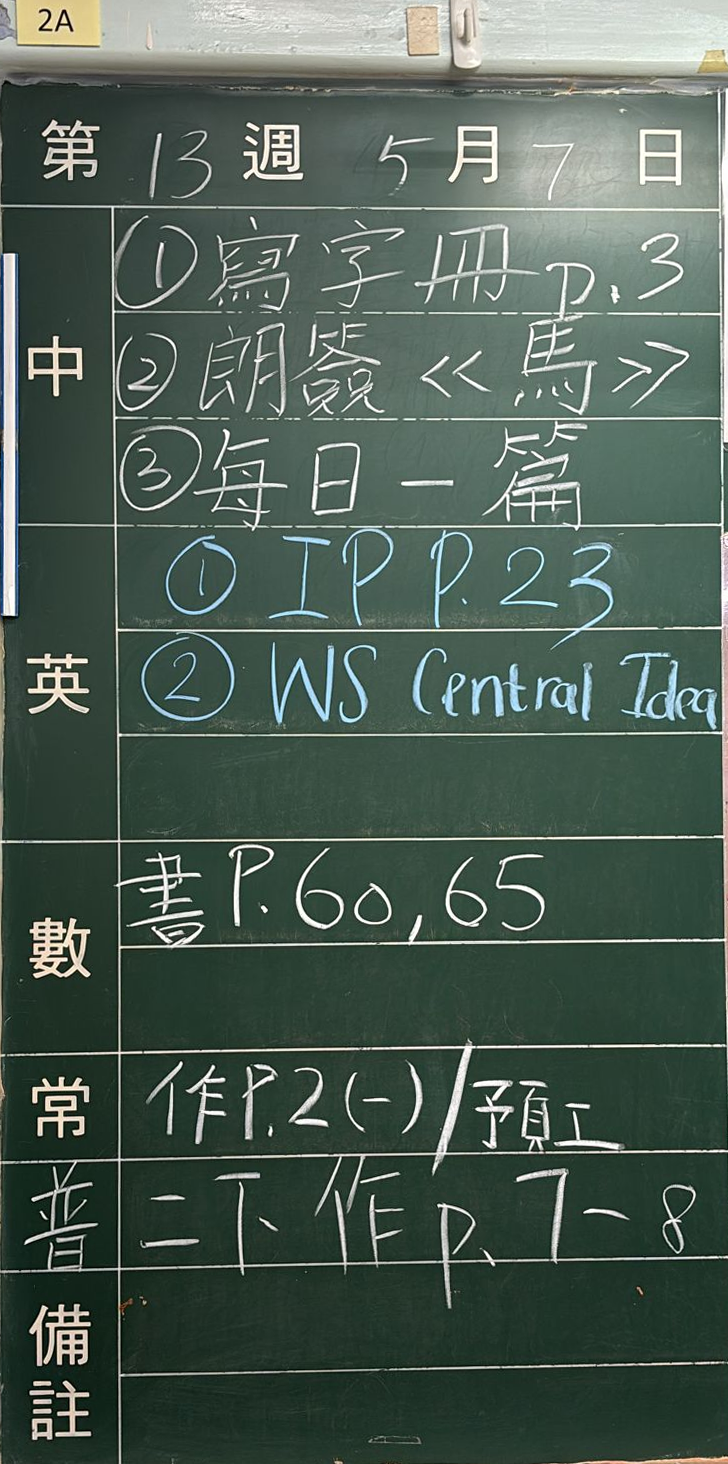 2A
第 13 週 5 月 7 日
中
① 寫字冊 p.3
② 朗簽 《馬》
③ 每日一篇
英
① IP P.23
② WS Central Idea
數
書 P.60,65
常
作P.2(一)/預工
普
二下作p.7-8
備註